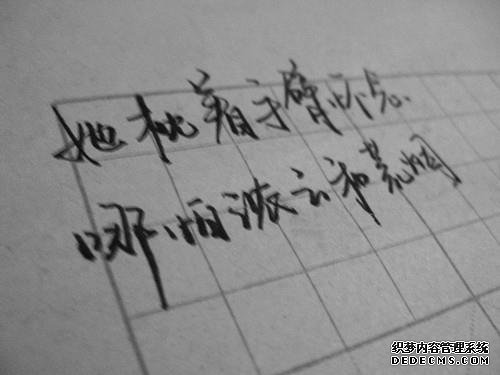 她枕着手臂
哪怕浓云和荒烟
织梦内容管理系统
DEDECMS.COM